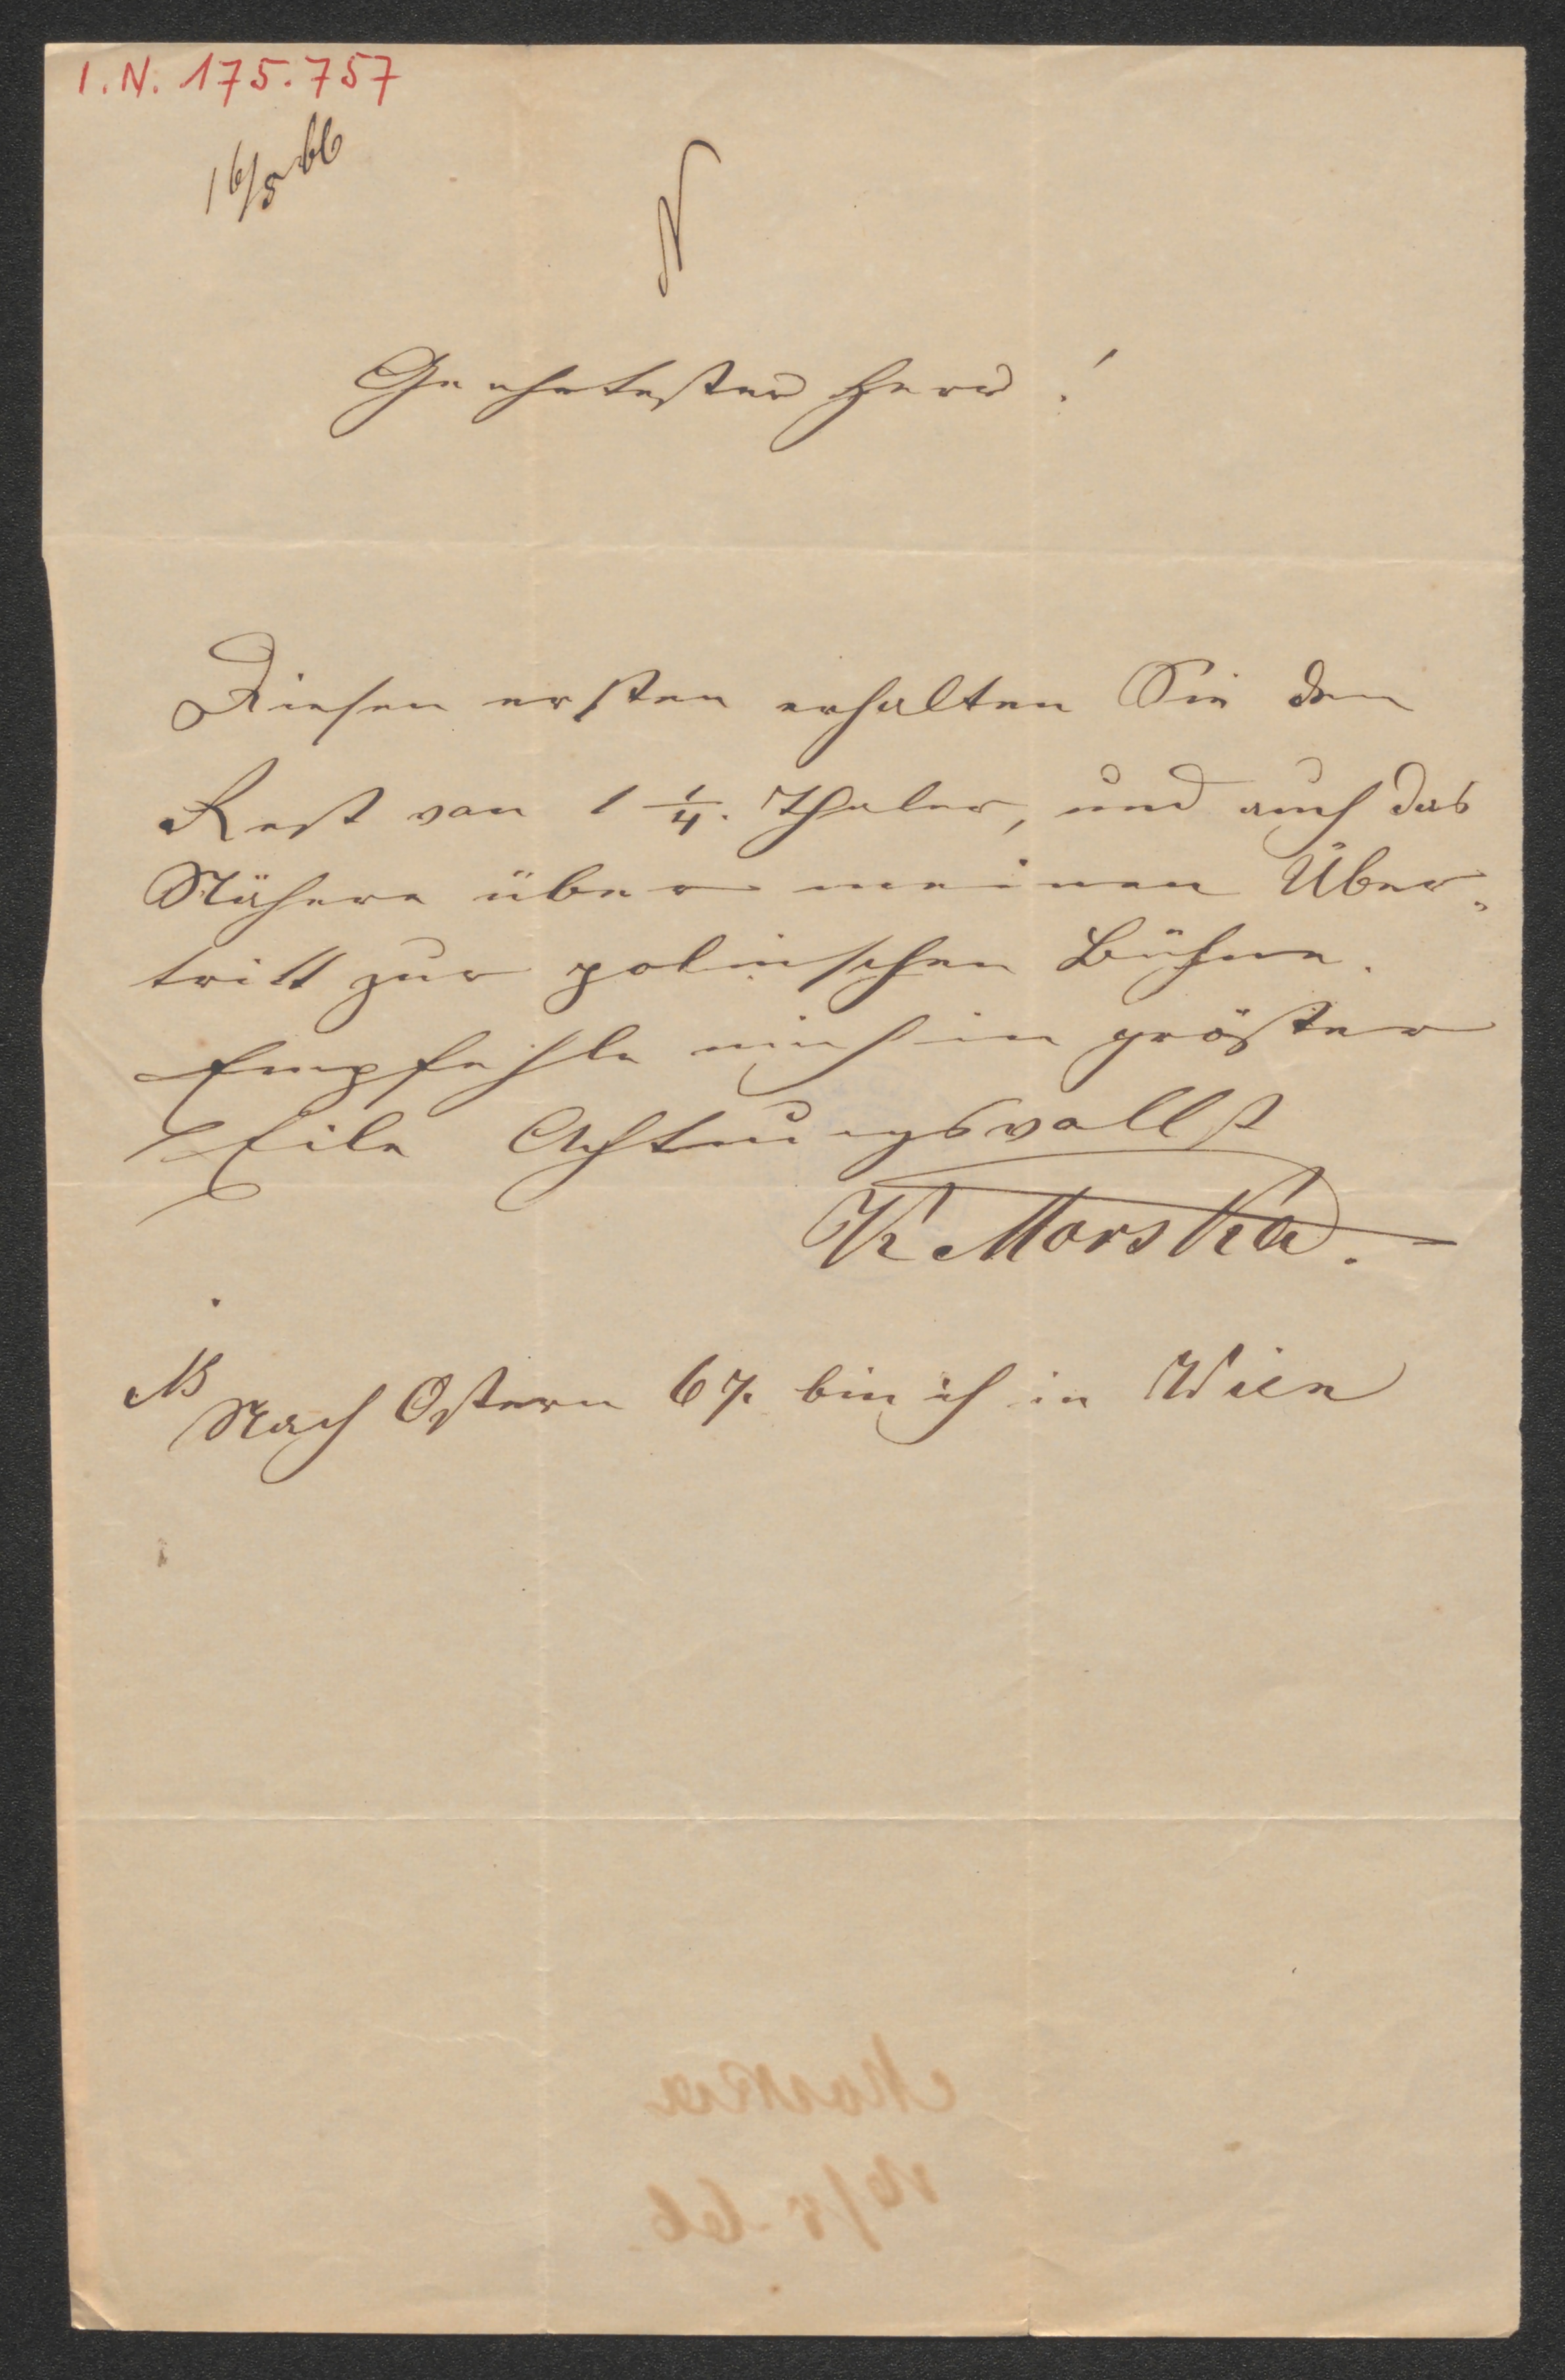 I.N. 175.757
16/5 66
N
Geehrtester Herr!
Diesen ersten erhalten Sie den
Rest von 1 1/4. Thaler, und auch das
Nähere über meinen Über-
tritt zur polnischen Bühne.
Empfehle mich in größter
Eile Achtungsvollst
K Morska.
NB
Nach Ostern 67. bin ich in Wien
Morska
16/5 66